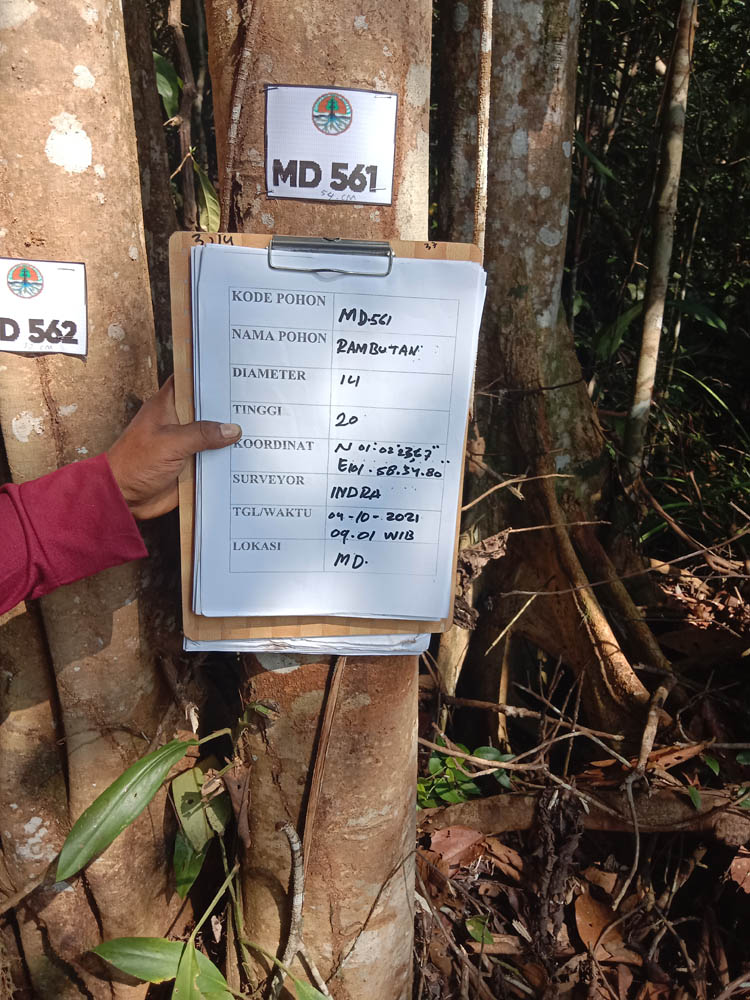 MD 561
54 CM
D 562
KODE POHON MD561
NAMA POHON RAMBUTAN
DIAMETER 14
TINGGI 20
KOORDINAT N 01:02'23,67"
E101.58.54.80"
SURVEYOR INDRA
TGL/WAKTU 04-10-2021
09.01 WIB
LOKASI MD.